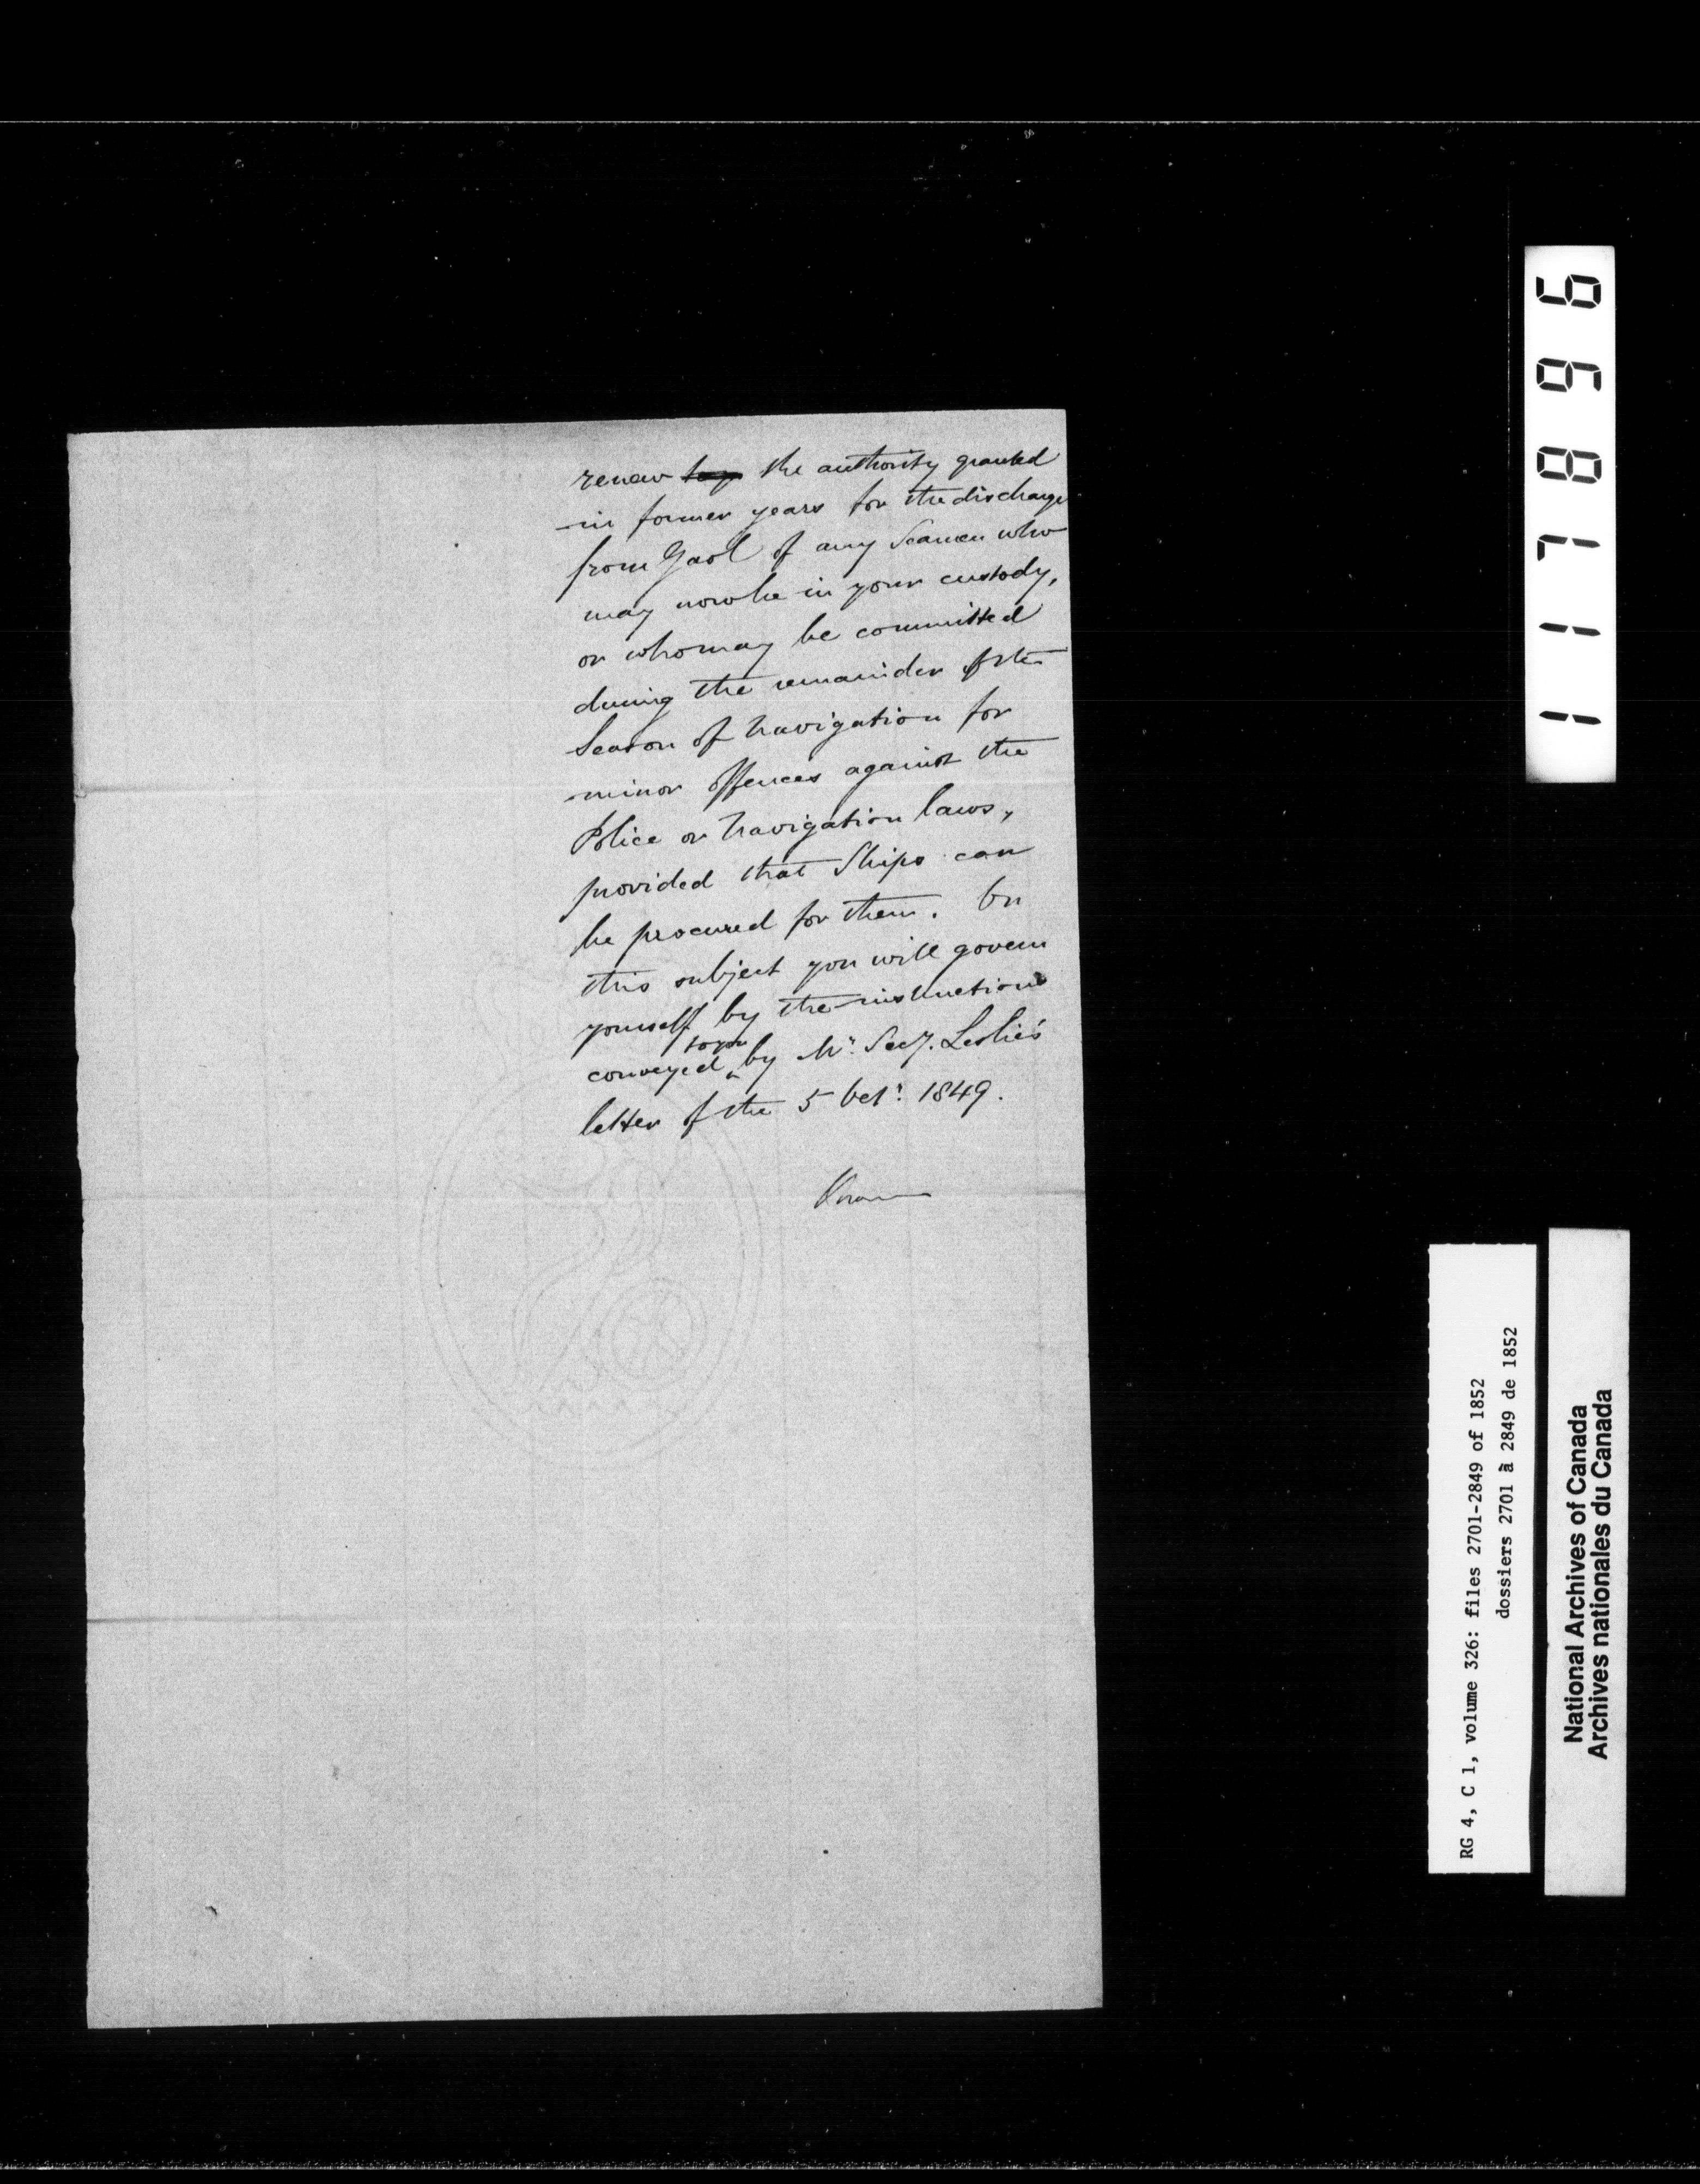 renew the authority granted
in former years for the discharge
from Gaol of any Seamen who
may now be in your custody,
or who may be committed
during the remainder of the
Season of Navigation for
minor offences against the
Police or Navigation laws,
provided that Ships can
be procured for them. On
this subject you will govern
yourself by the instructions
to you
conveyed by Mr. Secy. Leslie's
letter of the 5 Octr. 1849.
117896
RG 4, C 1, volume 326: files 2701-2849 of 1852
dossiers 2701 à 2849 de 1852
National Archives of Canada
Archives nationales du Canada